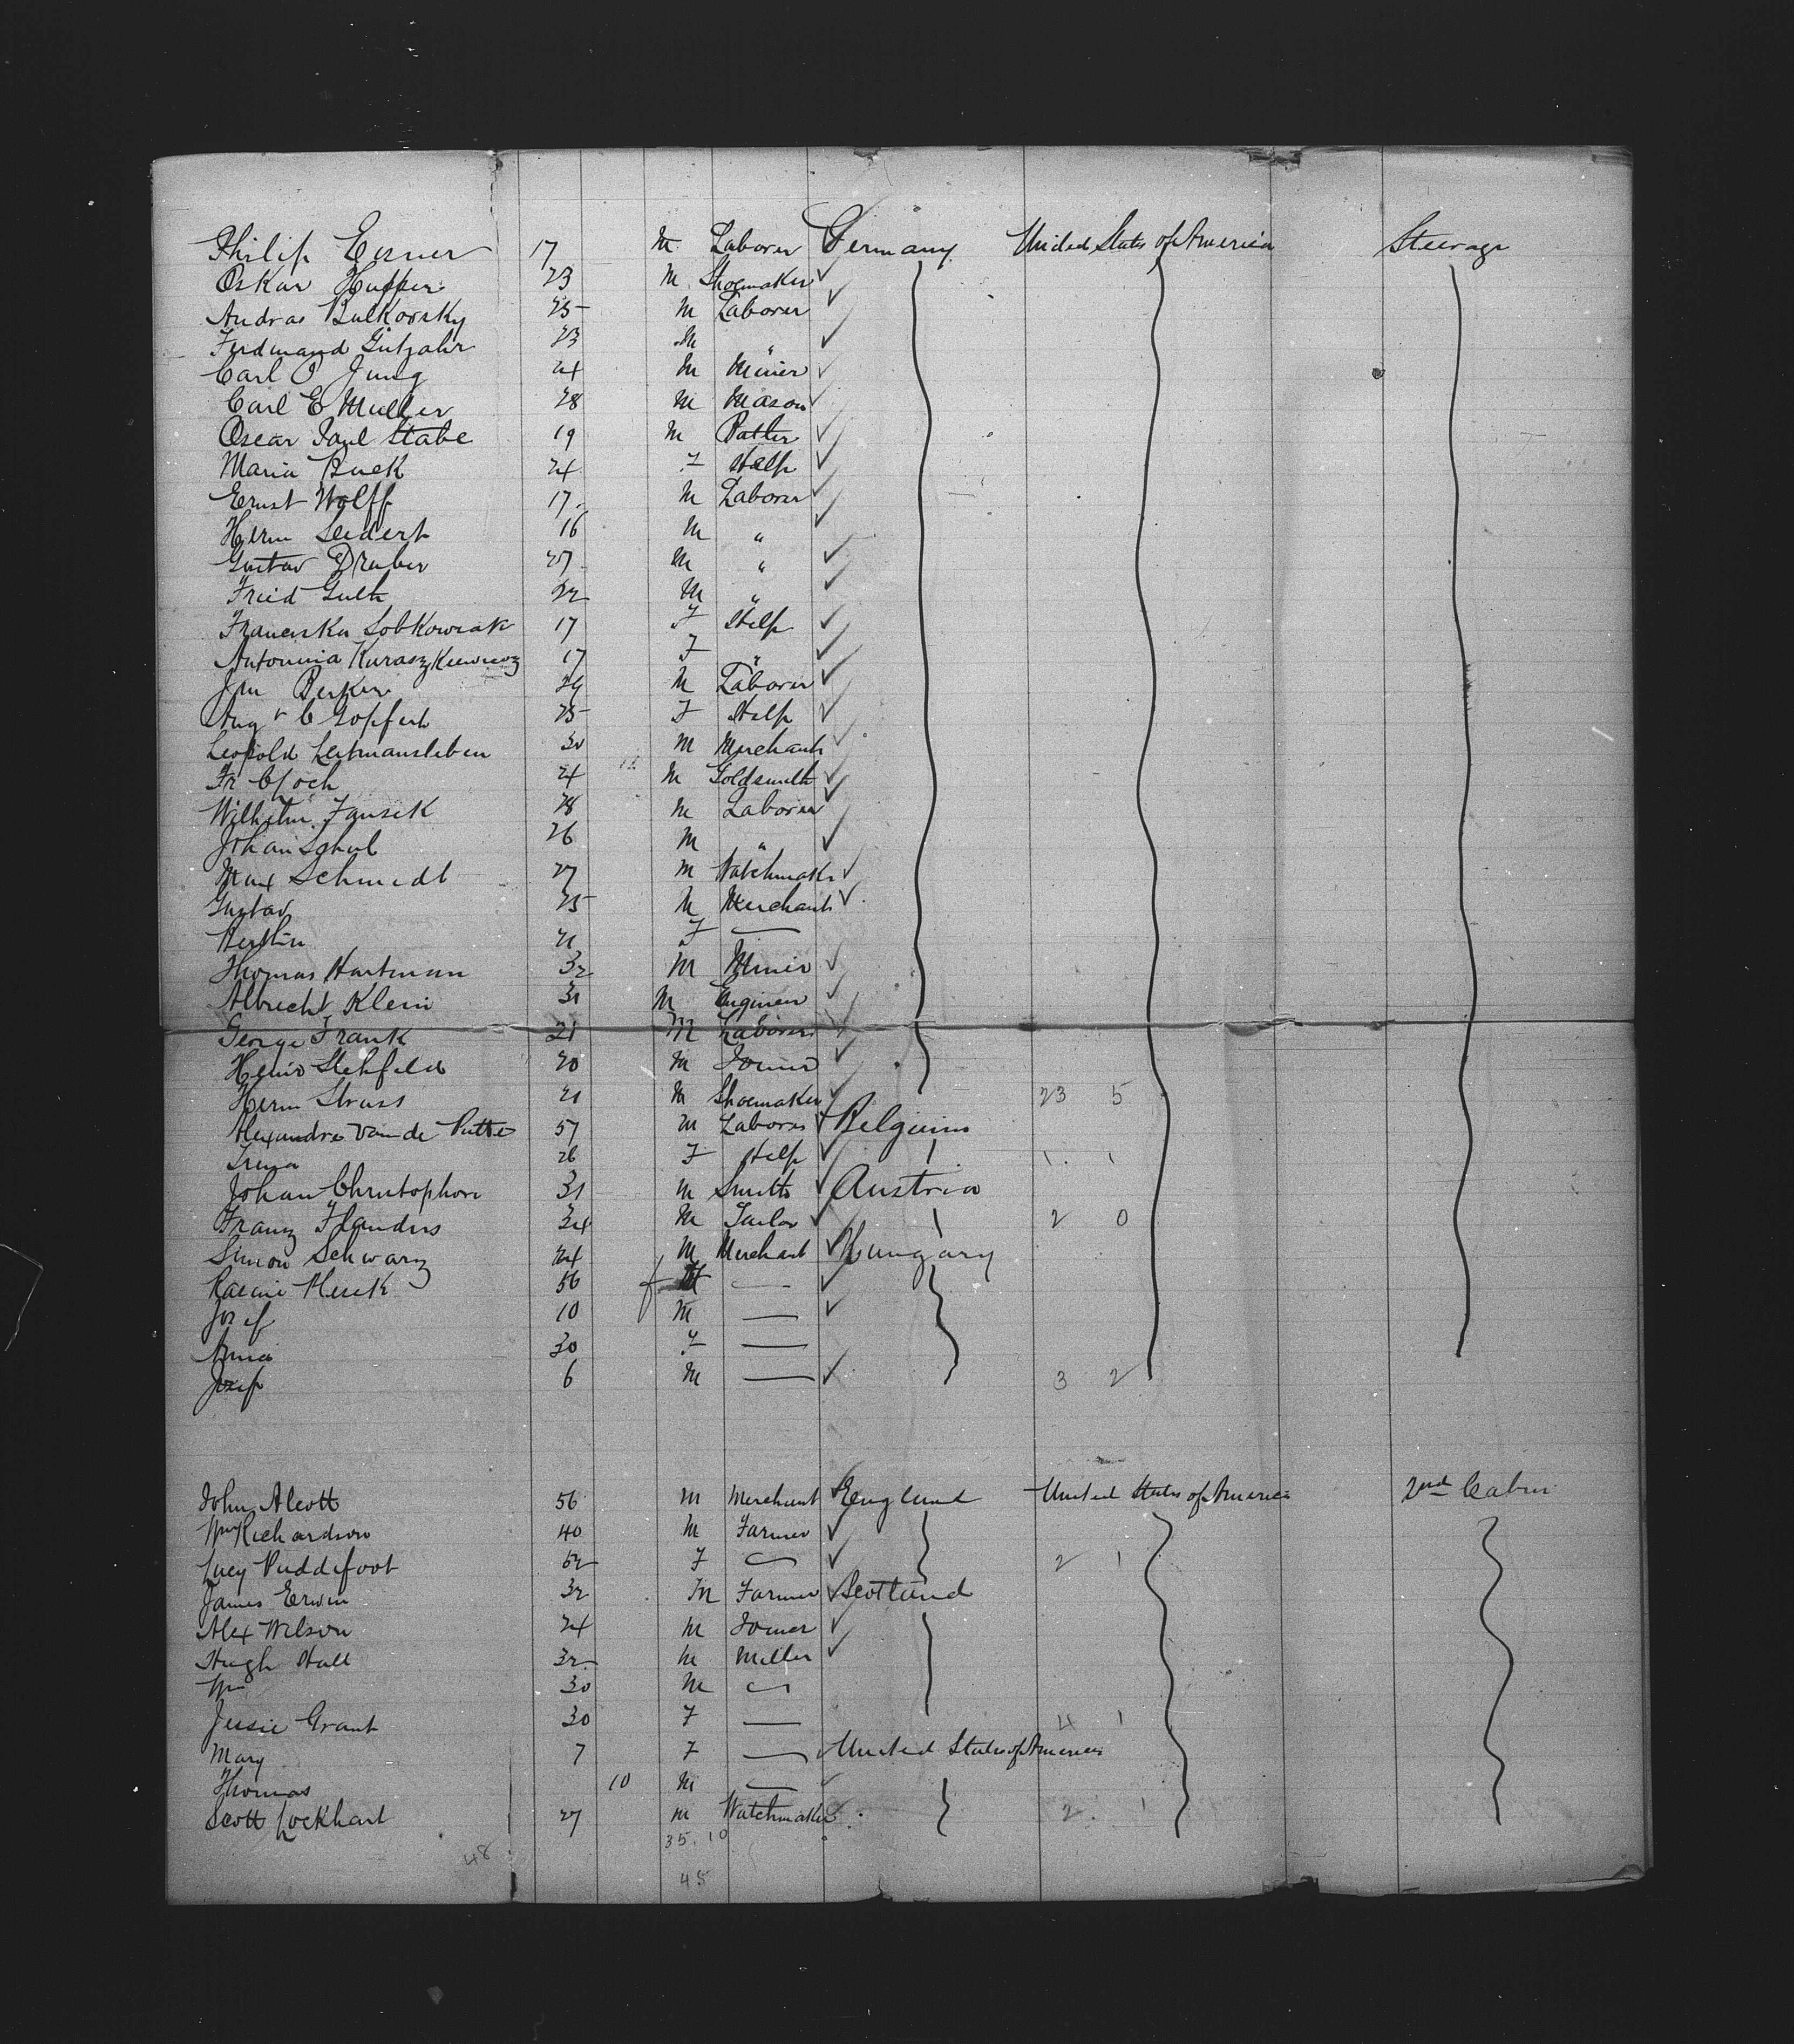 Philip Eisner 17 M. Laborer Germany United States of America Steerage
Oskar Hupper 23 M Shoemaker
Andras Bulkovsky 25 M Laborer
Ferdinand Gutzahr 23 M "
Carl O Jung 24 M Miner
Carl E Muller 28 M Mason
Oscar Paul Stabe 19 M Potter
Maria Buck 24 F Help
Ernst Wolff 17 M Laborer
Herm Seidert 16 M "
Gustav Draber 27 M "
Fried Guth 22 M "
Franciska Sobkowiak 17 F Help
Antonina 17 F "
Berker M Laborer
Aug C Gopfert 25 F Help
Leopold 30 M Merchant
Fr 24 M Goldsmith
Wilhelm Jansek 28 M Laborer
Johan Schul 26 M "
Max Schmidt 27 M Watchmaker
Gustav 25 M Merchant
21 F —
Thomas Hartman 32 M Miner
Albrecht Klein 31 M Engineer
George Frank 21 M Laborer
Stehfeld 20 M Joiner
Herm Struss 21 M Shoemaker 23 5
Alexandre Van de Putte 57 M Laborer Belgium
Irena 26 F Help 1 1
Johan Christophori 31 M Smith Austria
Franz Flanders 34 M Tailor 2 0
Simon Schwarz 24 M Merchant Hungary
56 f —
Josef 10 M —
Anna 30 F —
Josip 6 M — 3 2
John Alcott 56 M Merchant England United States of America 2nd Cabin
Wm Richardson 40 M Farmer
Lucy Puddefoot 52 F — 2 1
James Erwin 32 M Farmer Scotland
Alex Wilson 24 M Joiner
Hugh Hall 32 M Miller
Wm 30 M "
Jessie Grant 30 F — 4 1
Mary 7 F — United States of America
Thomas 10 M —
Scott Lockhart 27 M Watchmaker 2 1
35.10
48
45